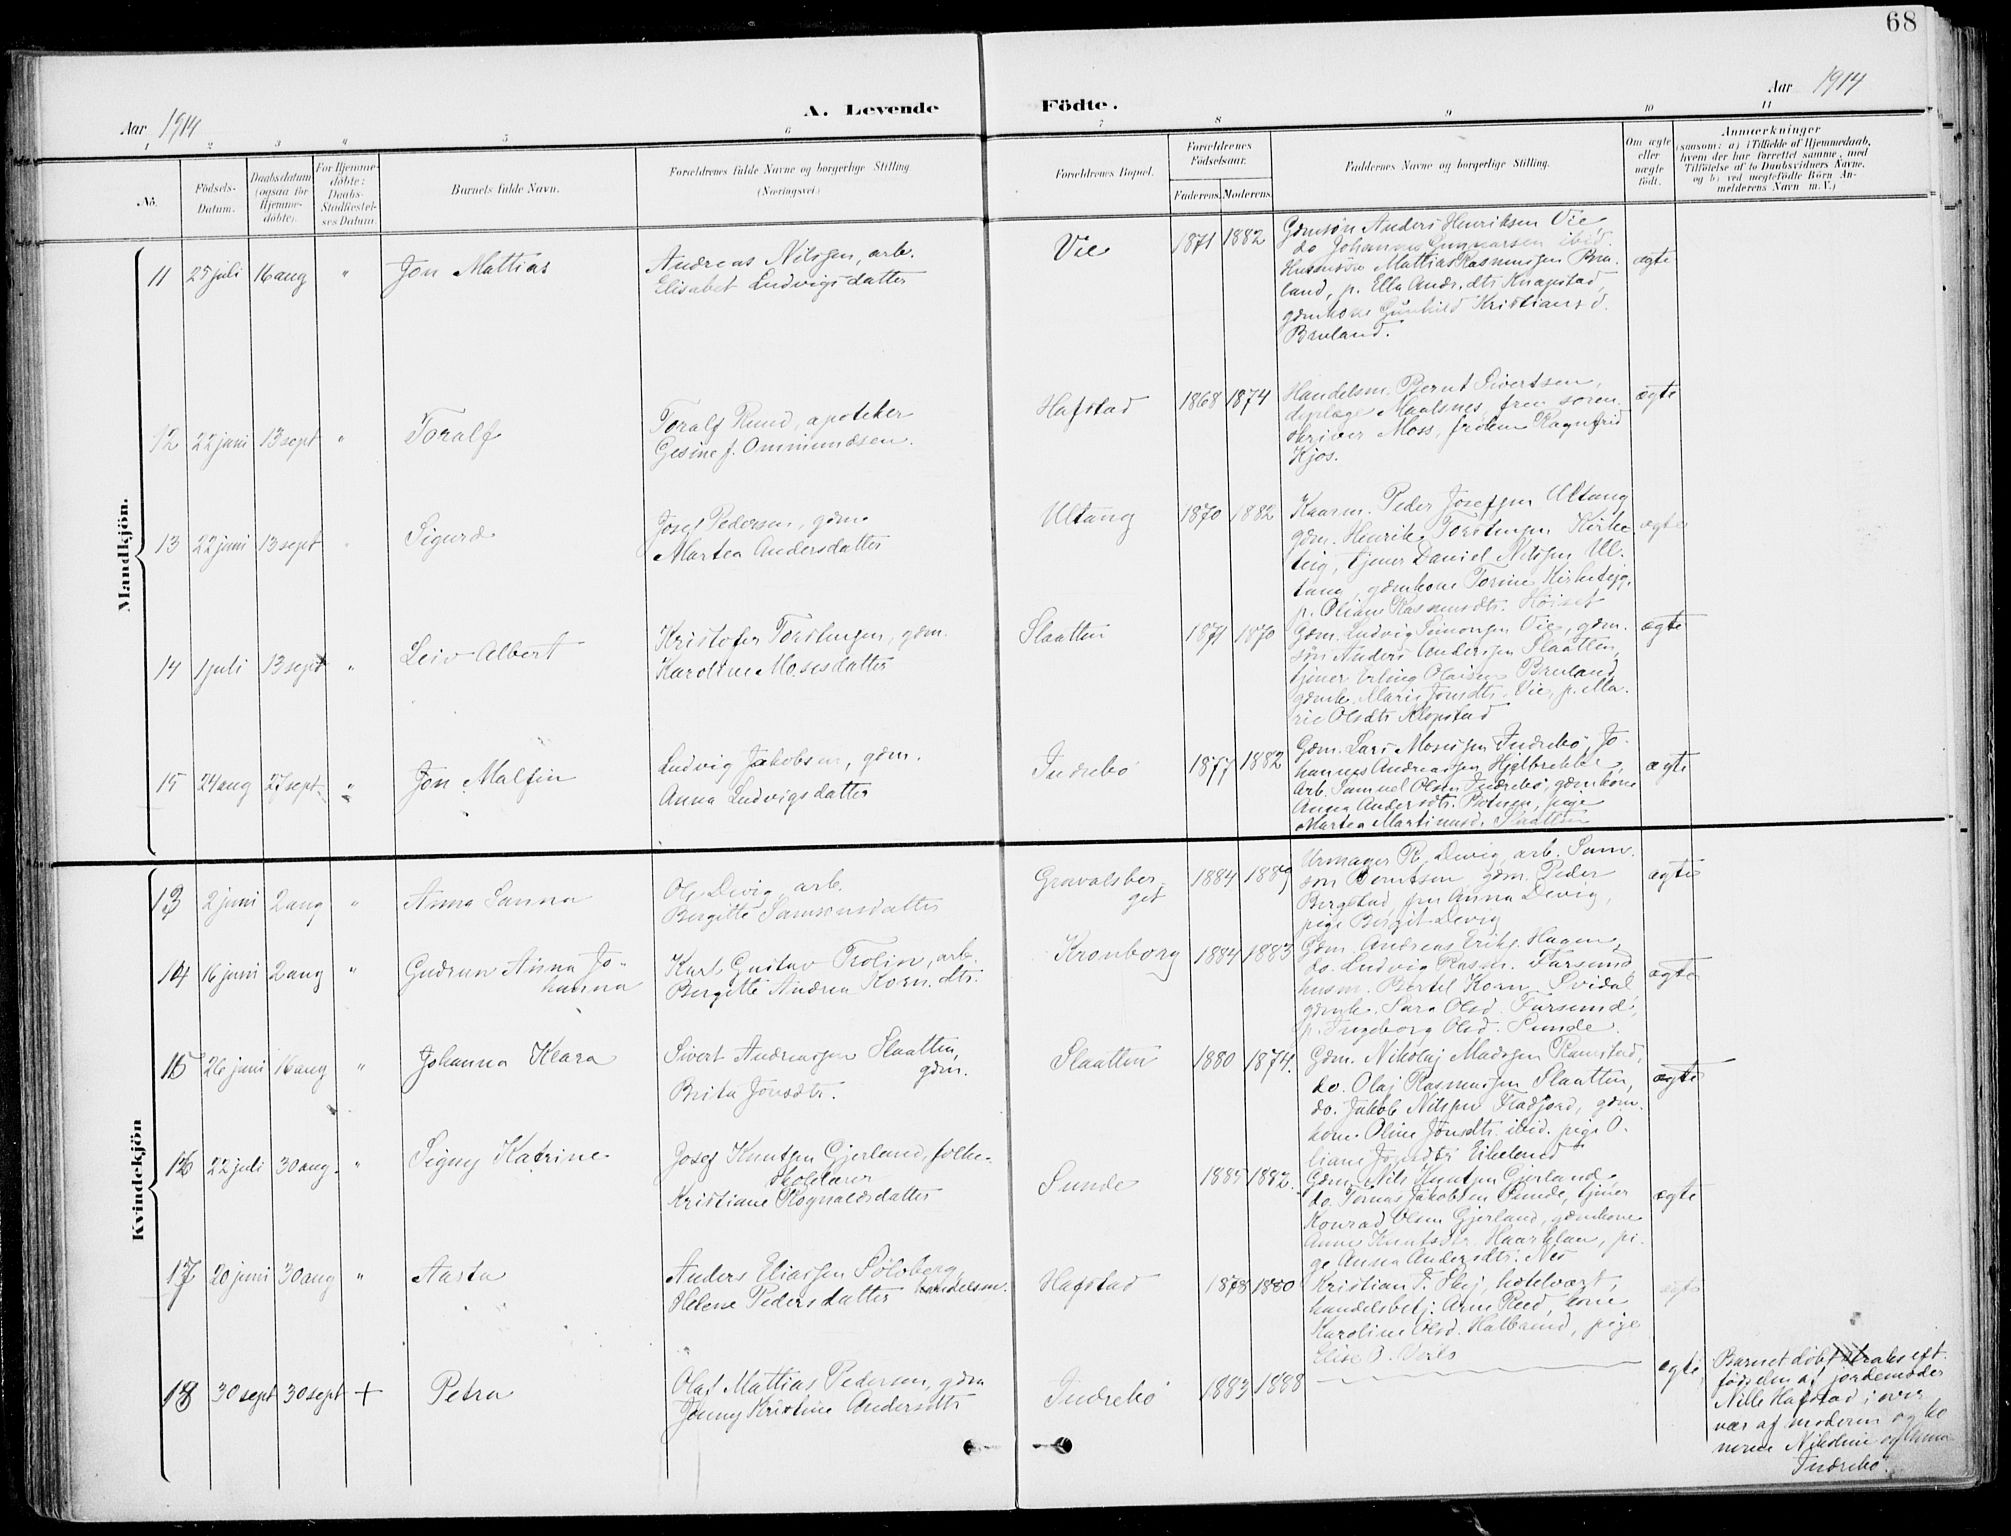 68
Aar 1914
A. Levende Födte.
Aar 1914
1 2 3 4 5 6 7 8 9 10 11
No.
Födsels-Datum.
Daabsdatum (ogsaa for Hjemmedöbte).
For Hjemmedöbte: Daabs-Stadfæstelses Datum.
Barnets fulde Navn.
Forældrenes fulde Navne og borgerlige Stilling
(Næringsvei.)
Forældrenes Bopæl.
Forældrenes Födselsaar.
Faderens. Moderens.
Faddernes Navne og borgerlige Stilling.
Om ægte eller uægte födt.
Anmærkninger
(saasom: a) i Tilfælde af Hjemmedaab,
hvem der har forrettet samme, med
Tilföielse af to Daabsvidners Navne,
og b) ved uægtefödte Börn Anmelderens Navn m. V.)
Mandkjön.
11 25 juli 16 aug " Jon Mattias
Andreas Nilsen, arb.
Elisabet Ludvigsdatter
Vie 1871 1882
Gdmsøn Anders Henriksen Vie
do Johannes Gunnarsen ibid.
Husmsøn Mattias Rasmussen Bru-
land, p. Ella Andr.dts Knapstad,
gdmkone Gunhild Kristiansd.
Bruland.
ægte
12 22 juni 13 sept " Toralf
Toralf Rund, apoteker
Gesine f. Ommundsen.
Hafstad 1868 1874
Handelsm. Bernt Sivertsen,
dyrlæge Maalsnes, fru soren-
skriver Moss, frøken Ragnfrid
Kjos.
ægte
13 22 juni 13 sept Sigurd
Josef Pedersen, gdm.
Martea Andersdatter
Ultang 1870 1882
Kaarm. Peder Josefsen Ultang
gdm. Henrik Torstensen Kirke-
teig, tjener Daniel Nilsen Ul-
tang, gdmkone Torine Kirketeig,
p. Oliane Rasmusdtr. Høiset
ægte
14 1 juli 13 sept " Leiv Albert
Kristofer Torstensen, gdm.
Karoline Mosesdatter
Slaatten 1871 1870
Gdm. Ludvig Simonsen Vie, gdm.
søn Anders Andersen Slaatten,
tjener Erling Olaisen Bruland,
gdmk. Marie Jonsdtr. Vie, p. Ma-
rie Olsdtr Klopstad
ægte
15 24 aug 27 sept. " Jon Malfin
Ludvig Jakobsen, gdm.
Anna Ludvigsdatter
Indrebø 1877 1882
Gdm. Lars Mosesen Indrebø, Jo-
hannes Andreassen Hjelbrekke,
arb. Samuel Olsen Indrebø, gdmkone
Anna Andersdtr. Botnen, pige
Martea Martinusd. Slaatten
ægte
Kvindekjön
13 2 juni 2 aug " Anna Sanna
Ole Devig, arb.
Bergitte Samsonsdatter
Gravalsber-
get 1884 1889
Urmager R. Devig, arb. Sam-
son Berntsen, gdm. Peder
Bergstad, fru Anna Devig,
pige Bergit Devig
ægte
14 16 juni 2 aug " Gudrun Anna Jo-
hanna
Karl Gustav Trolin, arb.
Bergitte Andrea Korn.dtr.
Kronborg 1884 1883
Gdm. Andreas Eriks. Hagen,
do. Ludvig Rasm. Farsund
husm. Bertel Korn. Svidal
gdmk. Sara Olsd. Farsund,
p. Ingeborg Olsd. Sunde.
ægte
15 26 juni 16 aug " Johanna Klara
Sivert Andreassen Slaatten,
gdm.
Brita Jonsdtr.
Slaatten 1880 1874.
Gdm. Nikolaj Madssen Ramstad,
do. Olaj Rasmussen Slaatten,
do. Jakob Nilssen Fladjord, gdm.
kone Oline Jonsdtr. ibid. pige O-
liane Josefdtr Eikelund
ægte
16 22 juli 30 aug. " Signy Katrine
Josef Knutsen Gjerland, folke-
skolelærer
Kristiane Rognaldsdatter
Sunde 1885 1882.
Gdm. Nils Knutsen Gjerland,
do. Tomas Jakobsen Sunde, tjener
Konrad Olsen Gjerland, gdmkone
Anne Knutsdtr Haarklau, pi-
ge Anna Andersdtr. Nes
ægte
17 20 juni 30 aug " Aasta
Anders Eliassen Solvberg,
handelsm.
Helene Pedersdatter
Hafstad 1878 1880
Kristian F. Skej, hotelvært,
handelsbetj. Arne Reed, kone
Karoline Olsd. Halbrend, pige
Elise
ægte
18 30 sept 30 sept + Petra
Olaf Mattias Pedersen, gdm
Jenny Kristine Andersdtr
Indrebø 1883 1888
ægte,
Barnet døbt straks eft.
fødselen af jordemoder
Nille Hafstad i over
vær af moderen og ko
nerne Nikoline og Anna
Indrebø.